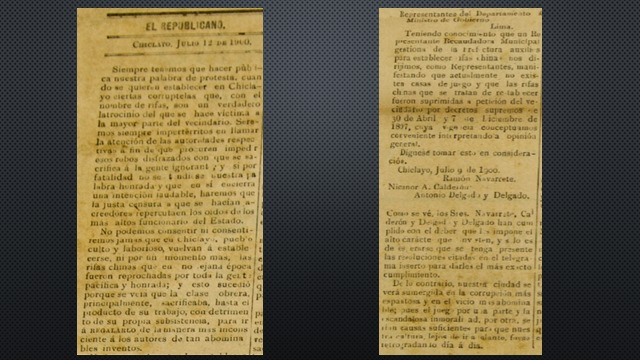 EL REPUBLICANO.
CHICLAYO, JULIO 12 DE 1900.
Siempre tenemos que hacer públi
ca nuestra palabra de protesta, cuan
do se quieren establecer en Chicla-
yo ciertas corruptelas que, con el
nombre de rifas, son un verdadero
latrocinio del que se hace víctima a
la mayor parte del vecindario. Sere-
mos siempre impertérritos en llamar
la atención de las autoridades respec-
tivas a fin de que procuren impedir
esos robos disfrazados con que se sa-
crifica á la gente ignorant; y si por
fatalidad no se nuestra pa
labra honrada y que en sí encierra
una intención laudable, haremos que
la justa censura a que se hacían a-
creedores repercuta en los oídos de los
más altos funcionario del Estado.
No podemos consentir ni consenti-
remos jamás que en Chiclayo, pueblo
culto y laborioso, vuelvan á estable
cerse, ni por un momento mas, las
rifas chinas que en no lejana época
fueron reprochadas por toda la gent
pacífica y honrada; y esto sucedió
porque se veía que la clase obrera,
principalmente, sacrificaba, hasta el
producto de su trabajo, con detrimen
to de su propia subsistencia, para ir
á de la manera más incons
ciente á los autores de tan abomina
bles inventos.
Representantes del Departamento
Ministro de Gobierno
Lima.
Teniendo conocimiento que un Re
presentante Recaudadora Municipal
gestiona de la auxilio
para establecer rifas chinas nos di-
rijimos, como Representantes, mani-
festando que actualmente no exis-
ten casas de juego y que las rifas
chinas que se tratan de restablecer
fueron suprimidas a petición del ve-
cindario por decretos supremos de
30 de Abril, y 7 de Diciembre de
1897, cuya vigencia conceptuamos
conveniente interpretando a opinión
general.
Dígnese tomar esto en considera-
ción.
Chiclayo, Julio 9 de 1900.
Ramón Navarrete.
Nicanor A. Calderón
Antonio Delgado y Delgado.
Como se vé, los Sres. Navarrete, Cal
derón y Delgado y Delgado han cum
plido con el deber que les impone el
alto carácte que invisten, y sólo es
de esperarse que se tenga presente
las resoluciones citadas en el telegra-
ma inserto para darles el más exacto
cumplimiento.
De lo contrario, nuestra ciudad se
verá sumergida en la corrupción más
espantosa y en el vicio mas abomina
ble; pues el juego por una parte y la
escandalosa inmoralidad, por otra, se
rían causas suficientes para que nues
tra cultura, lejos de ir adelante, fuese
retrogradando día á día.